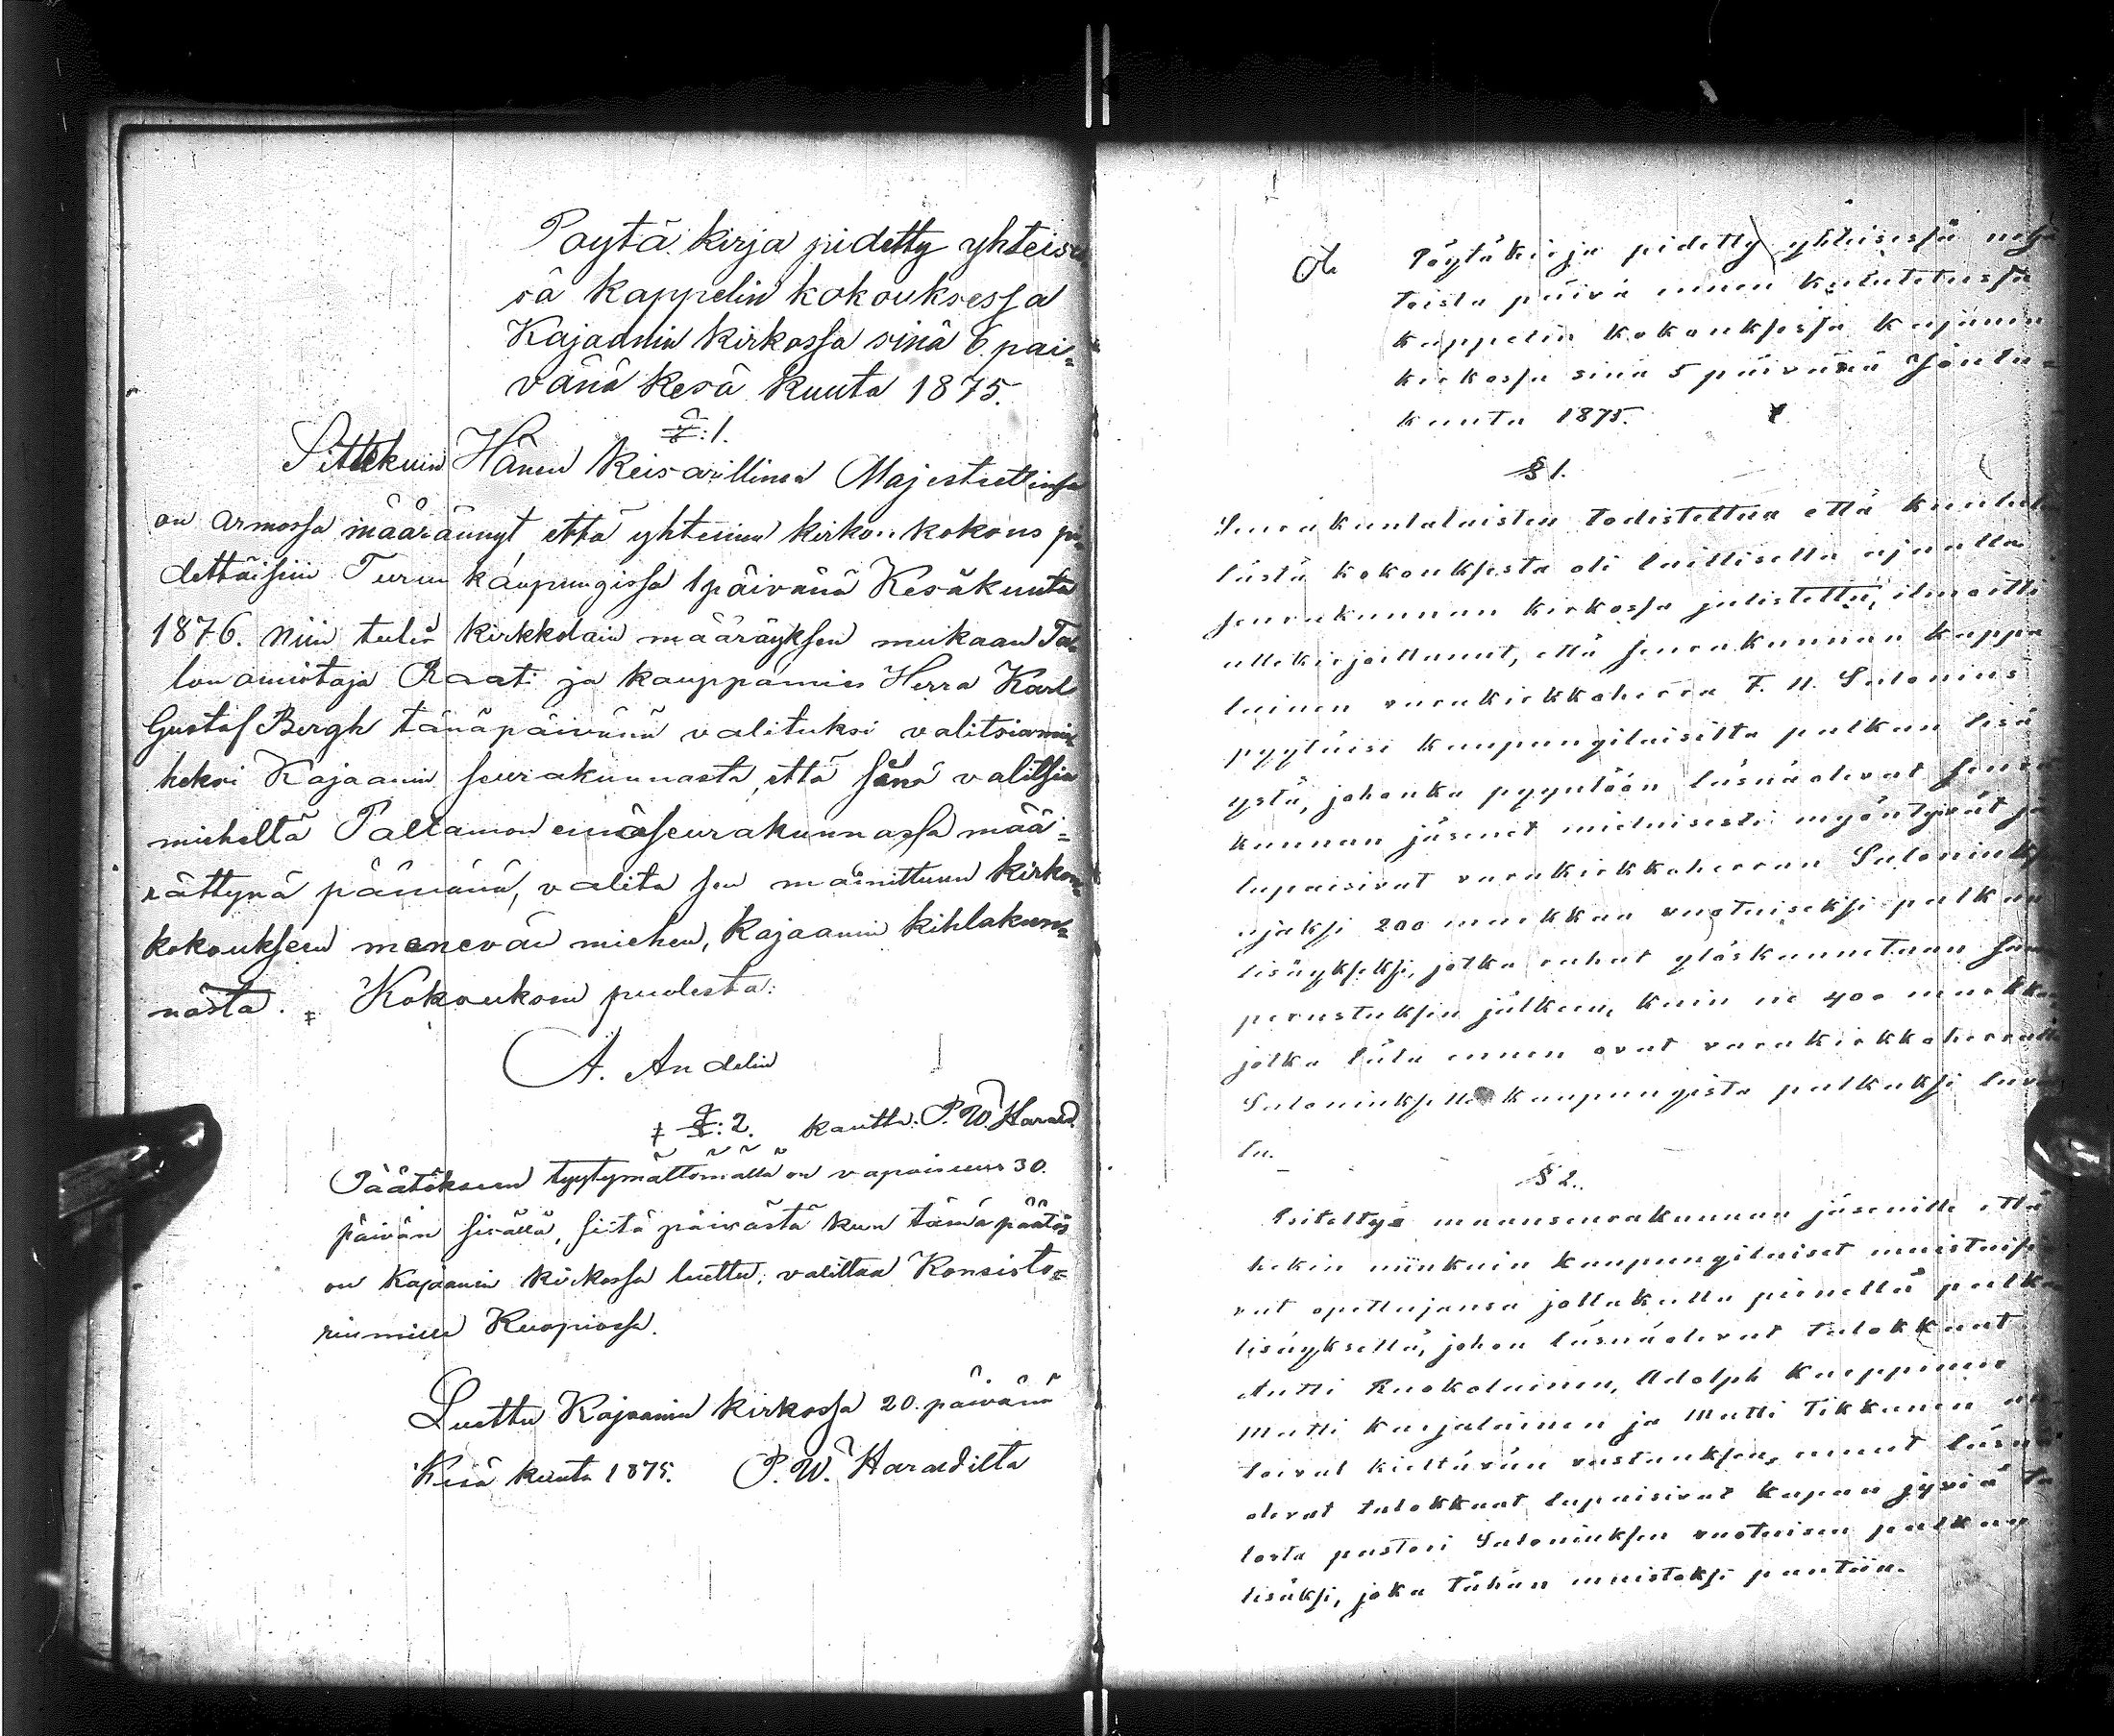 Poytä kirja pidetty yhteises
sä kappelin kokouksessa
Kajaanin kirkossa sinä 6. päi=
vänä Kesä kuuta 1875.
§: 1.
Sittekuin Hänen Keisarillinen Majestettinsa
on armossa määrännyt että yhteinen kirkon kokous pi=
dettäisiin Turun kaupungissa 1 päivänä Kesäkuuta
1876. niin tuli kirkkolain määräyksen mukaan Ta=
lon omistaja Raati ja kauppamies Herra Karl
Gustaf Bergh tänäpäivänä valituksi valitsiamie
heksi Kajaanin seurakunnasta, että valitsia
mieheltä Paltamon emäseurakunnassa mää=
rättynä päivänä, valita sen mainittuun kirkon=
kokoukseen menevän miehen, Kajaanin kihlakun=
nasta. ‡ Kokouksen puolesta:
A. Andelin
‡ §: 2. kautta: P. W. Harald.
Päätökseen tyytymättömällä on vapaisuus 30.
päivän sisällä, siitä päivästä kun tämä päätös
on Kajaanin kirkossa luettu, valittaa Konsisto=
riumiin Kuopiossa.
Luettu Kajaanin kirkossa 20. päivänä
Kesä kuuta 1875. P. W. Haraldilta
Pöytäkirja pidetty yhteisessä neljä
toista päivä ennen kuulutetussa
kappelin kokouksessa Kajanin
kirkossa sinä 5 päivänä Joulu=
kuuta 1875.
§ 1.
Seurakuntalaisten todistettua että kuulutu
tästä kokouksesta oli laillisella ajalla
seurakunnan kirkossa julistettu, ilmoitti
allekirjoittanut, että seurakunnan kappa
lainen varakirkkoherra F. H. Salonius
pyytäisi kaupungilaisilta palkan lisä
ystä, johonka pyyntöön läsnäolevat seura
kunnan jäsenet mieluisesti myöntyivät ja
lupaisivat varakirkkoherran Saloniuks
ajaksi 200 markkaa vuotuiseksi palkan
lisäykseksi, jotka rahat ylöskannetaan sam
perustuksen jälkeen, kuin ne 400 markkaa
jotka tätä ennen ovat varakirkkoherralle
Saloniukselle kaupungista palkaksi luva
tu.
§ 2.
Esiteltys maaseurakunnan jäsenille että
hekin niinkuin kaupungilaiset muistaisi
vat opettajansa jollakulla pienellä palka
lisäyksellä, johon läsnäolevat talokkaat
Antti Ruokolainen, Adolph Karppinen
Matti Karjalainen ja Matti Tikkanen an=
toivat kieltävän vastauksen, muut läsnä
olevat talokkaat lupaisivat kapan jyviä ta
losta pastori Saloniuksen vuotuisen palkan
lisäksi, joka tähän muistoksi pantiin.